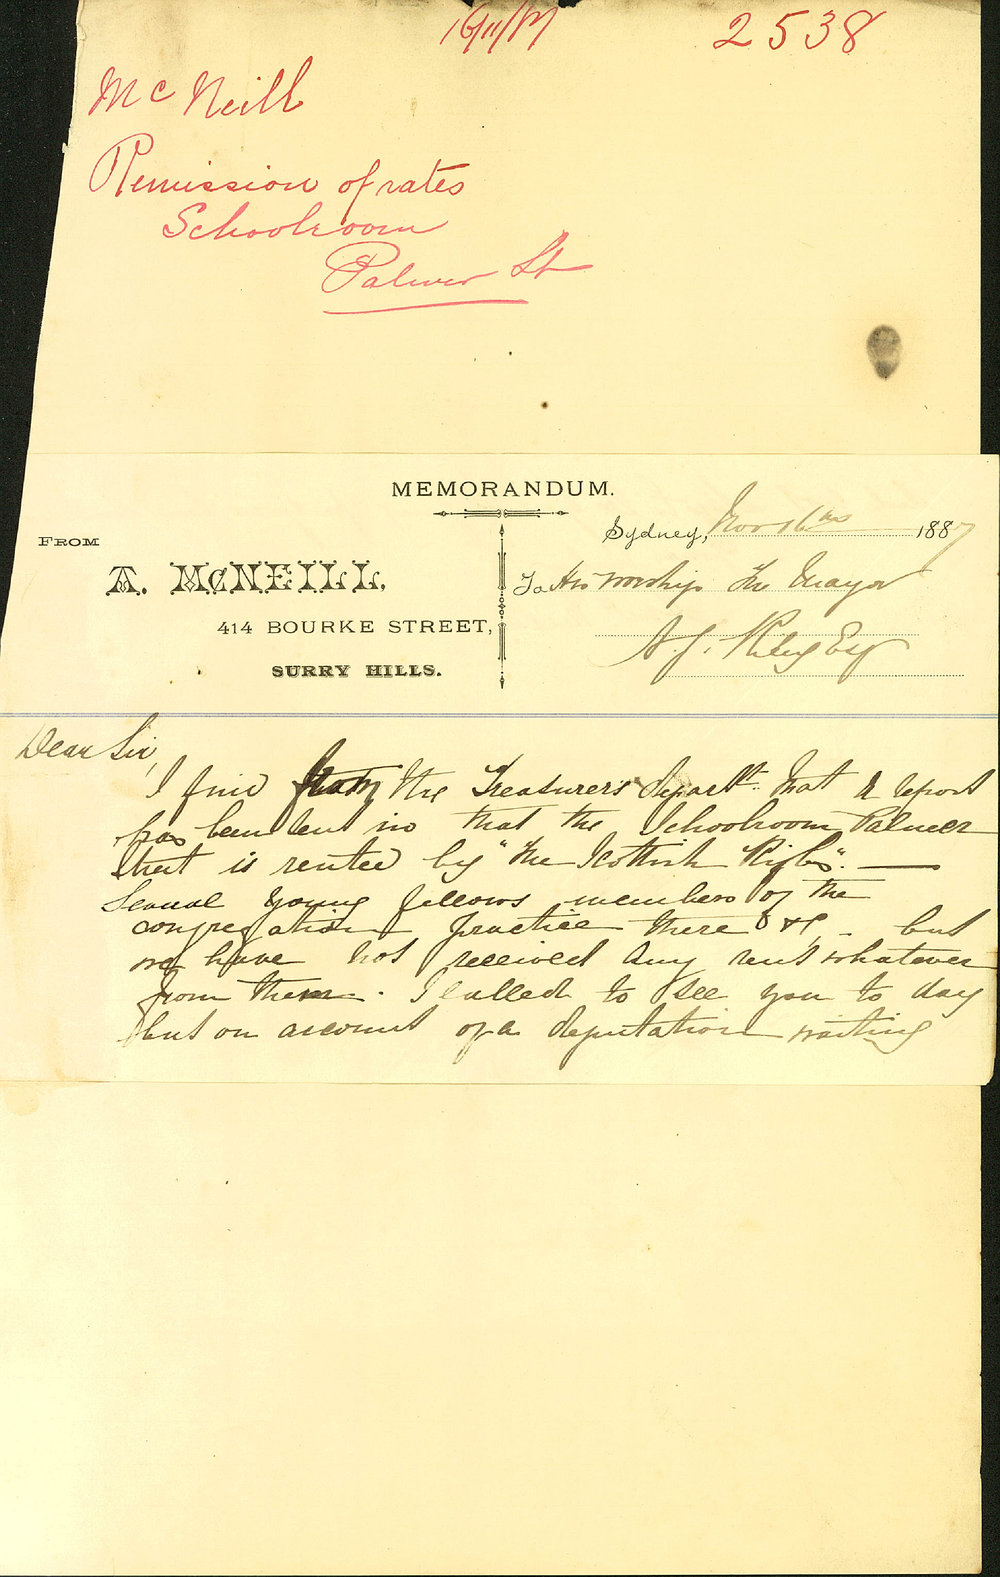 16/11/87
2538
McNeill
Remission of rates
Schoolroom
Palmer St
MEMORANDUM.
Sydney, Nov 16th 1887
FROM
A. McNEILL,
To His Worship The Mayor
414 BOURKE STREET,
A. J. Riley Esq
SURRY HILLS.
Dear Sir,
I find from the Treasurers Depart<sup>t</sup>. that a report
has been sent in that the Schoolroom Palmer
Street is rented by "The Scottish Rifles". —
Several young fellows members of the
congregation practice there &c, - but
we have not received any rent whatever
from them. I called to see you to day
but on account of a deputation waiting